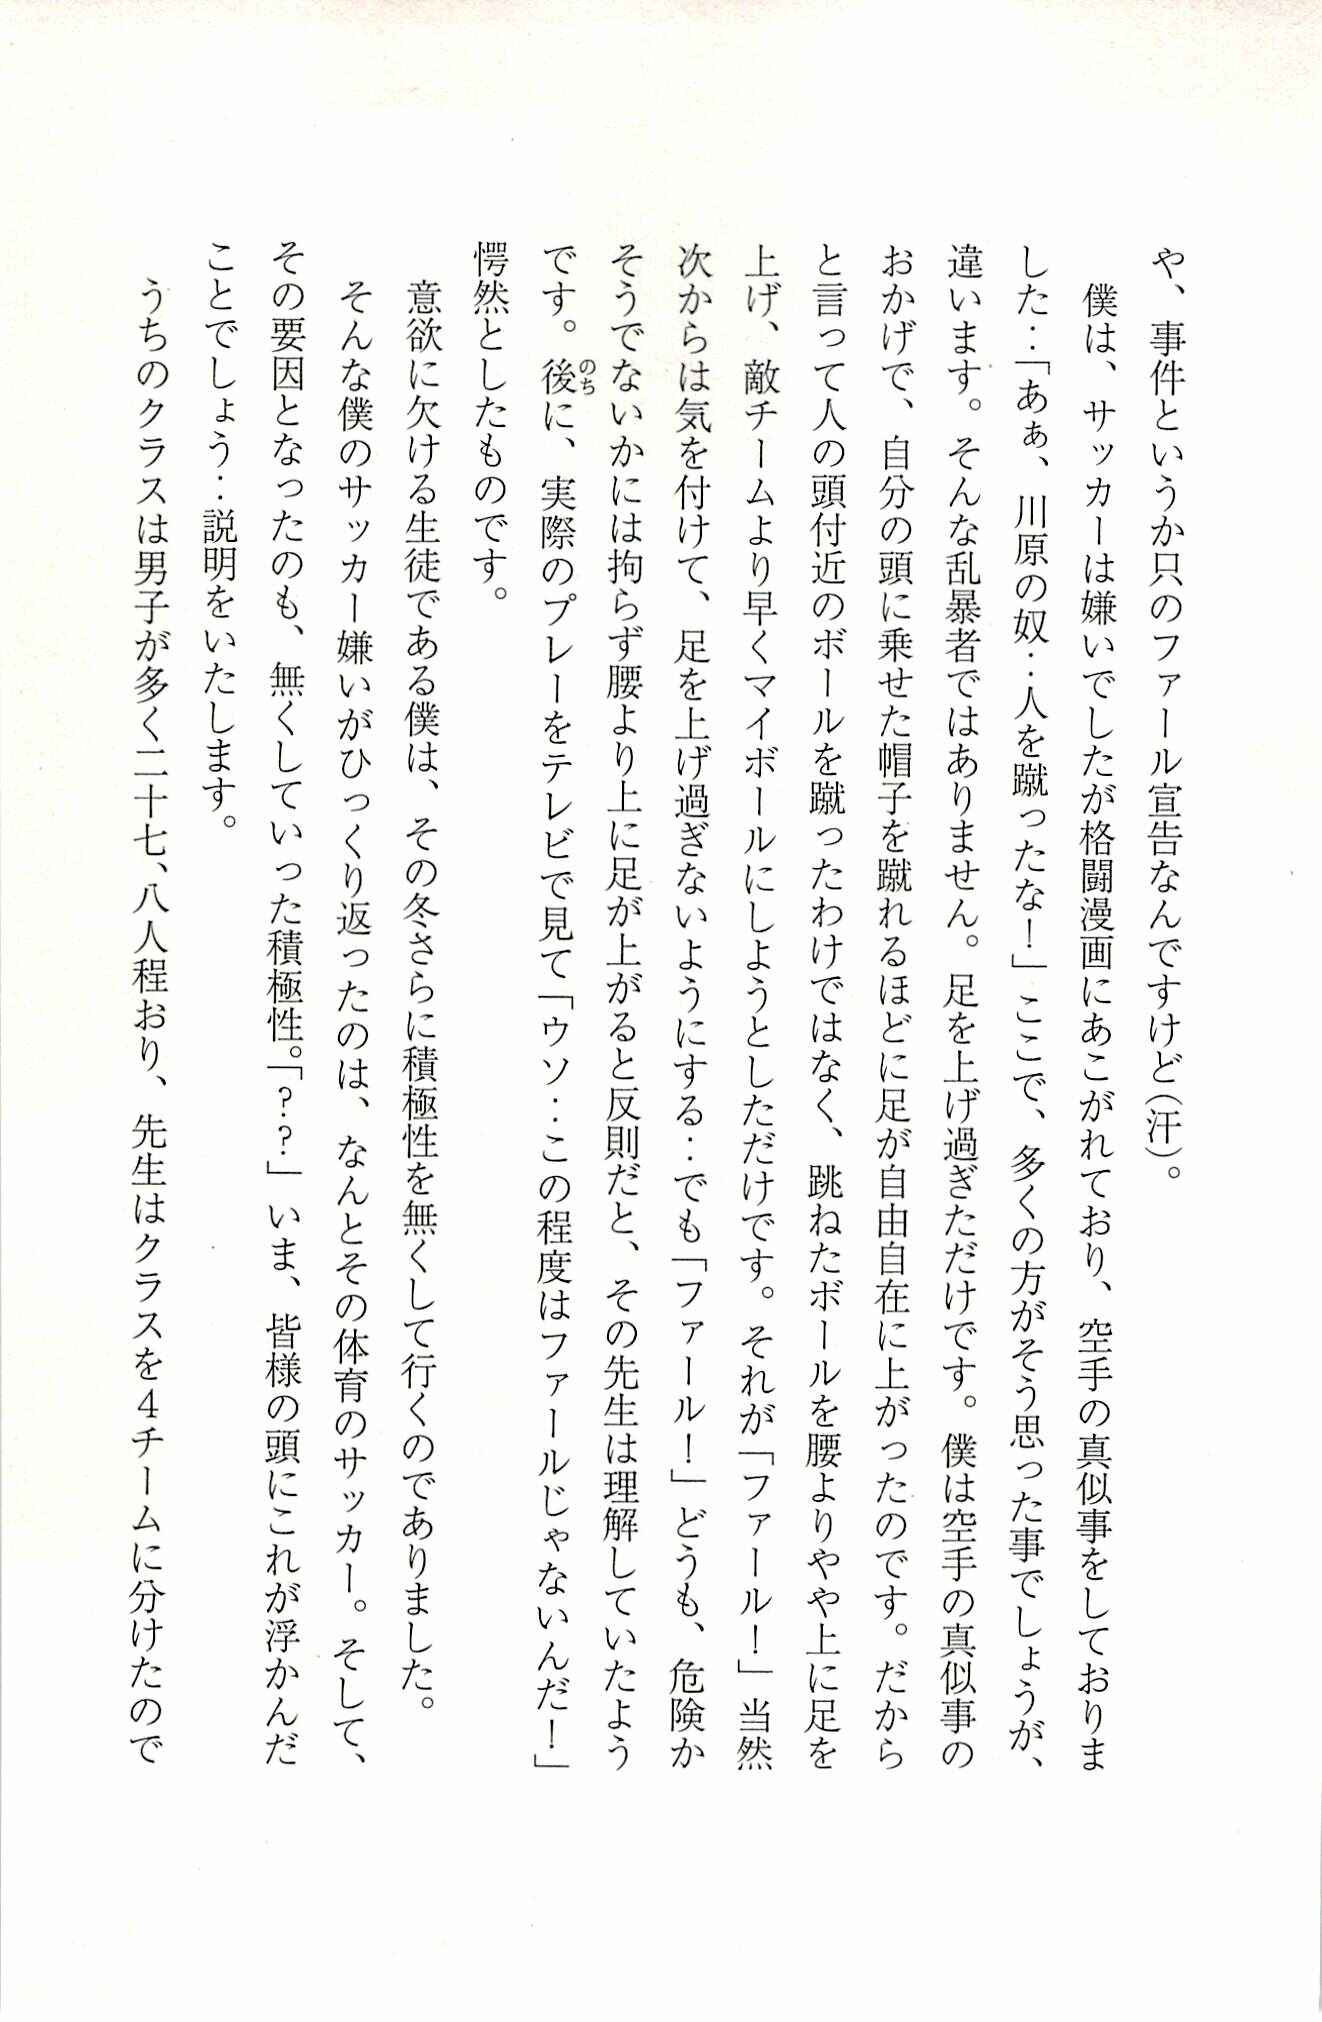 や、事件というか只のファール宣告なんですけど(汗)。
　僕は、サッカーは嫌いでしたが格闘漫画にあこがれており、空手の真似事をしておりま
した‥「あぁ、川原の奴‥人を蹴ったな！」ここで、多くの方がそう思った事でしょうが、
違います。そんな乱暴者ではありません。足を上げ過ぎただけです。僕は空手の真似事の
おかげで、自分の頭に乗せた帽子を蹴れるほどに足が自由自在に上がったのです。だから
と言って人の頭付近のボールを蹴ったわけではなく、跳ねたボールを腰よりやや上に足を
上げ、敵チームより早くマイボールにしようとしただけです。それが「ファール！」当然
次からは気を付けて、足を上げ過ぎないようにする‥でも「ファール！」どうも、危険か
そうでないかには拘らず腰より上に足が上がると反則だと、その先生は理解していたよう
です。後のちに、実際のプレーをテレビで見て「ウソ‥この程度はファールじゃないんだ！」
愕然としたものです。
　意欲に欠ける生徒である僕は、その冬さらに積極性を無くして行くのでありました。
　そんな僕のサッカー嫌いがひっくり返ったのは、なんとその体育のサッカー。そして、
その要因となったのも、無くしていった積極性。「？？」いま、皆様の頭にこれが浮かんだ
ことでしょう‥説明をいたします。
　うちのクラスは男子が多く二十七、八人程おり、先生はクラスを４チームに分けたので